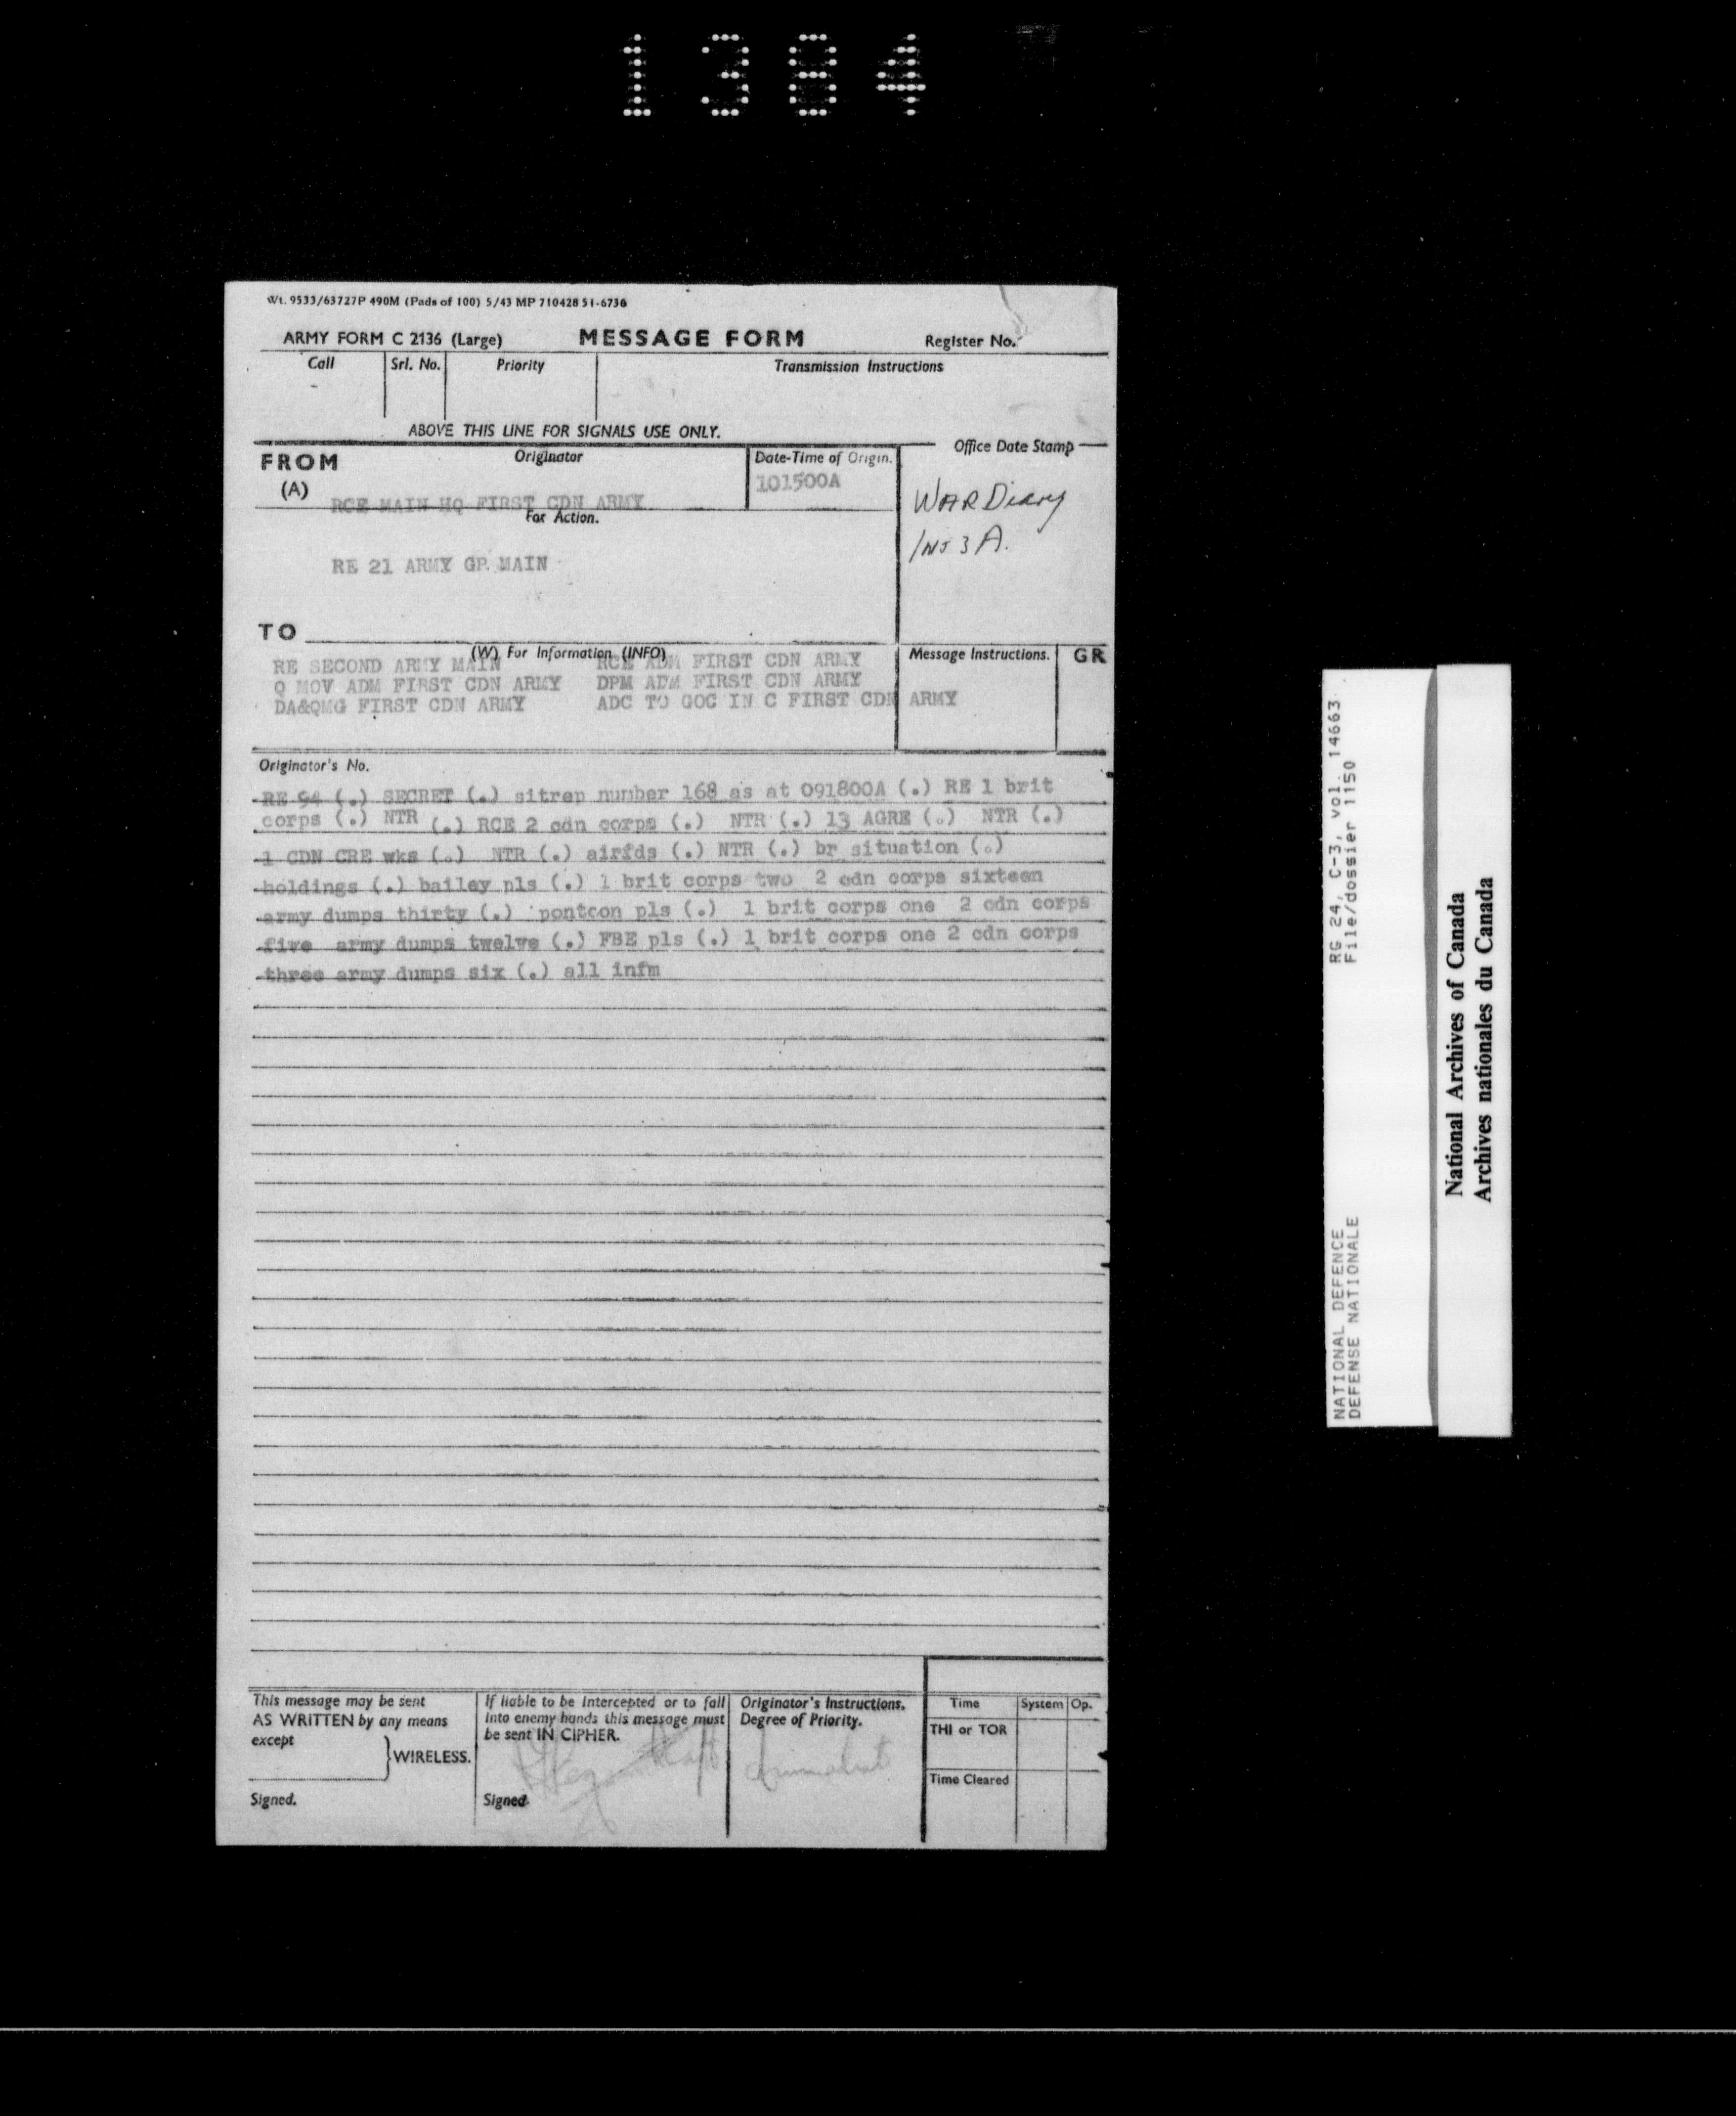 1384
Wt. 9533/63727P 490M (Pads of 100) 5/43 MP 710428 51-6736
ARMY FORM C 2136 (Large) MESSAGE FORM Register No.
Call Srl. No. Priority Transmission Instructions
ABOVE THIS LINE FOR SIGNALS USE ONLY.
FROM Originator Date-Time of Origin. Office Date Stamp
(A) 101500A
RCE MAIN HQ FIRST CDN ARMY
WAR Diary
For Action.
INJ 3 A.
RE 21 ARMY GP. MAIN
TO
(W) For Information (INFO) Message Instructions. GR
RE SECOND ARMY MAIN RCE ADM FIRST CDN ARMY
Q MOV ADM FIRST CDN ARMY DPM ADM FIRST CDN ARMY
DA&QMG FIRST CDN ARMY ADC TO GOC IN C FIRST CDN ARMY
Originator's No.
RE 94 (.) SECRET (.) sitrep number 168 as at 091800A (.) RE 1 brit
corps (.) NTR (.) RCE 2 cdn corps (.) NTR (.) 13 AGRE (.) NTR (.)
1 CDN CRE wks (.) NTR (.) airfds (.) NTR (.) br situation (.)
holdings (.) bailey pls (.) 1 brit corps two 2 cdn corps sixteen
army dumps thirty (.) pontoon pls (.) 1 brit corps one 2 cdn corps
five army dumps twelve (.) FBE pls (.) 1 brit corps one 2 cdn corps
three army dumps six (.) all infm
This message may be sent
AS WRITTEN by any means
except
} WIRELESS.
Signed.
If liable to be intercepted or to fall
into enemy hands this message must
be sent IN CIPHER.
Signed
Originator's Instructions.
Degree of Priority.
Immediate
Time System Op.
THI or TOR
Time Cleared
RG 24, C-3, vol. 14663
File/dossier 1150
NATIONAL DEFENCE
DEFENSE NATIONALE
National Archives of Canada
Archives nationales du Canada